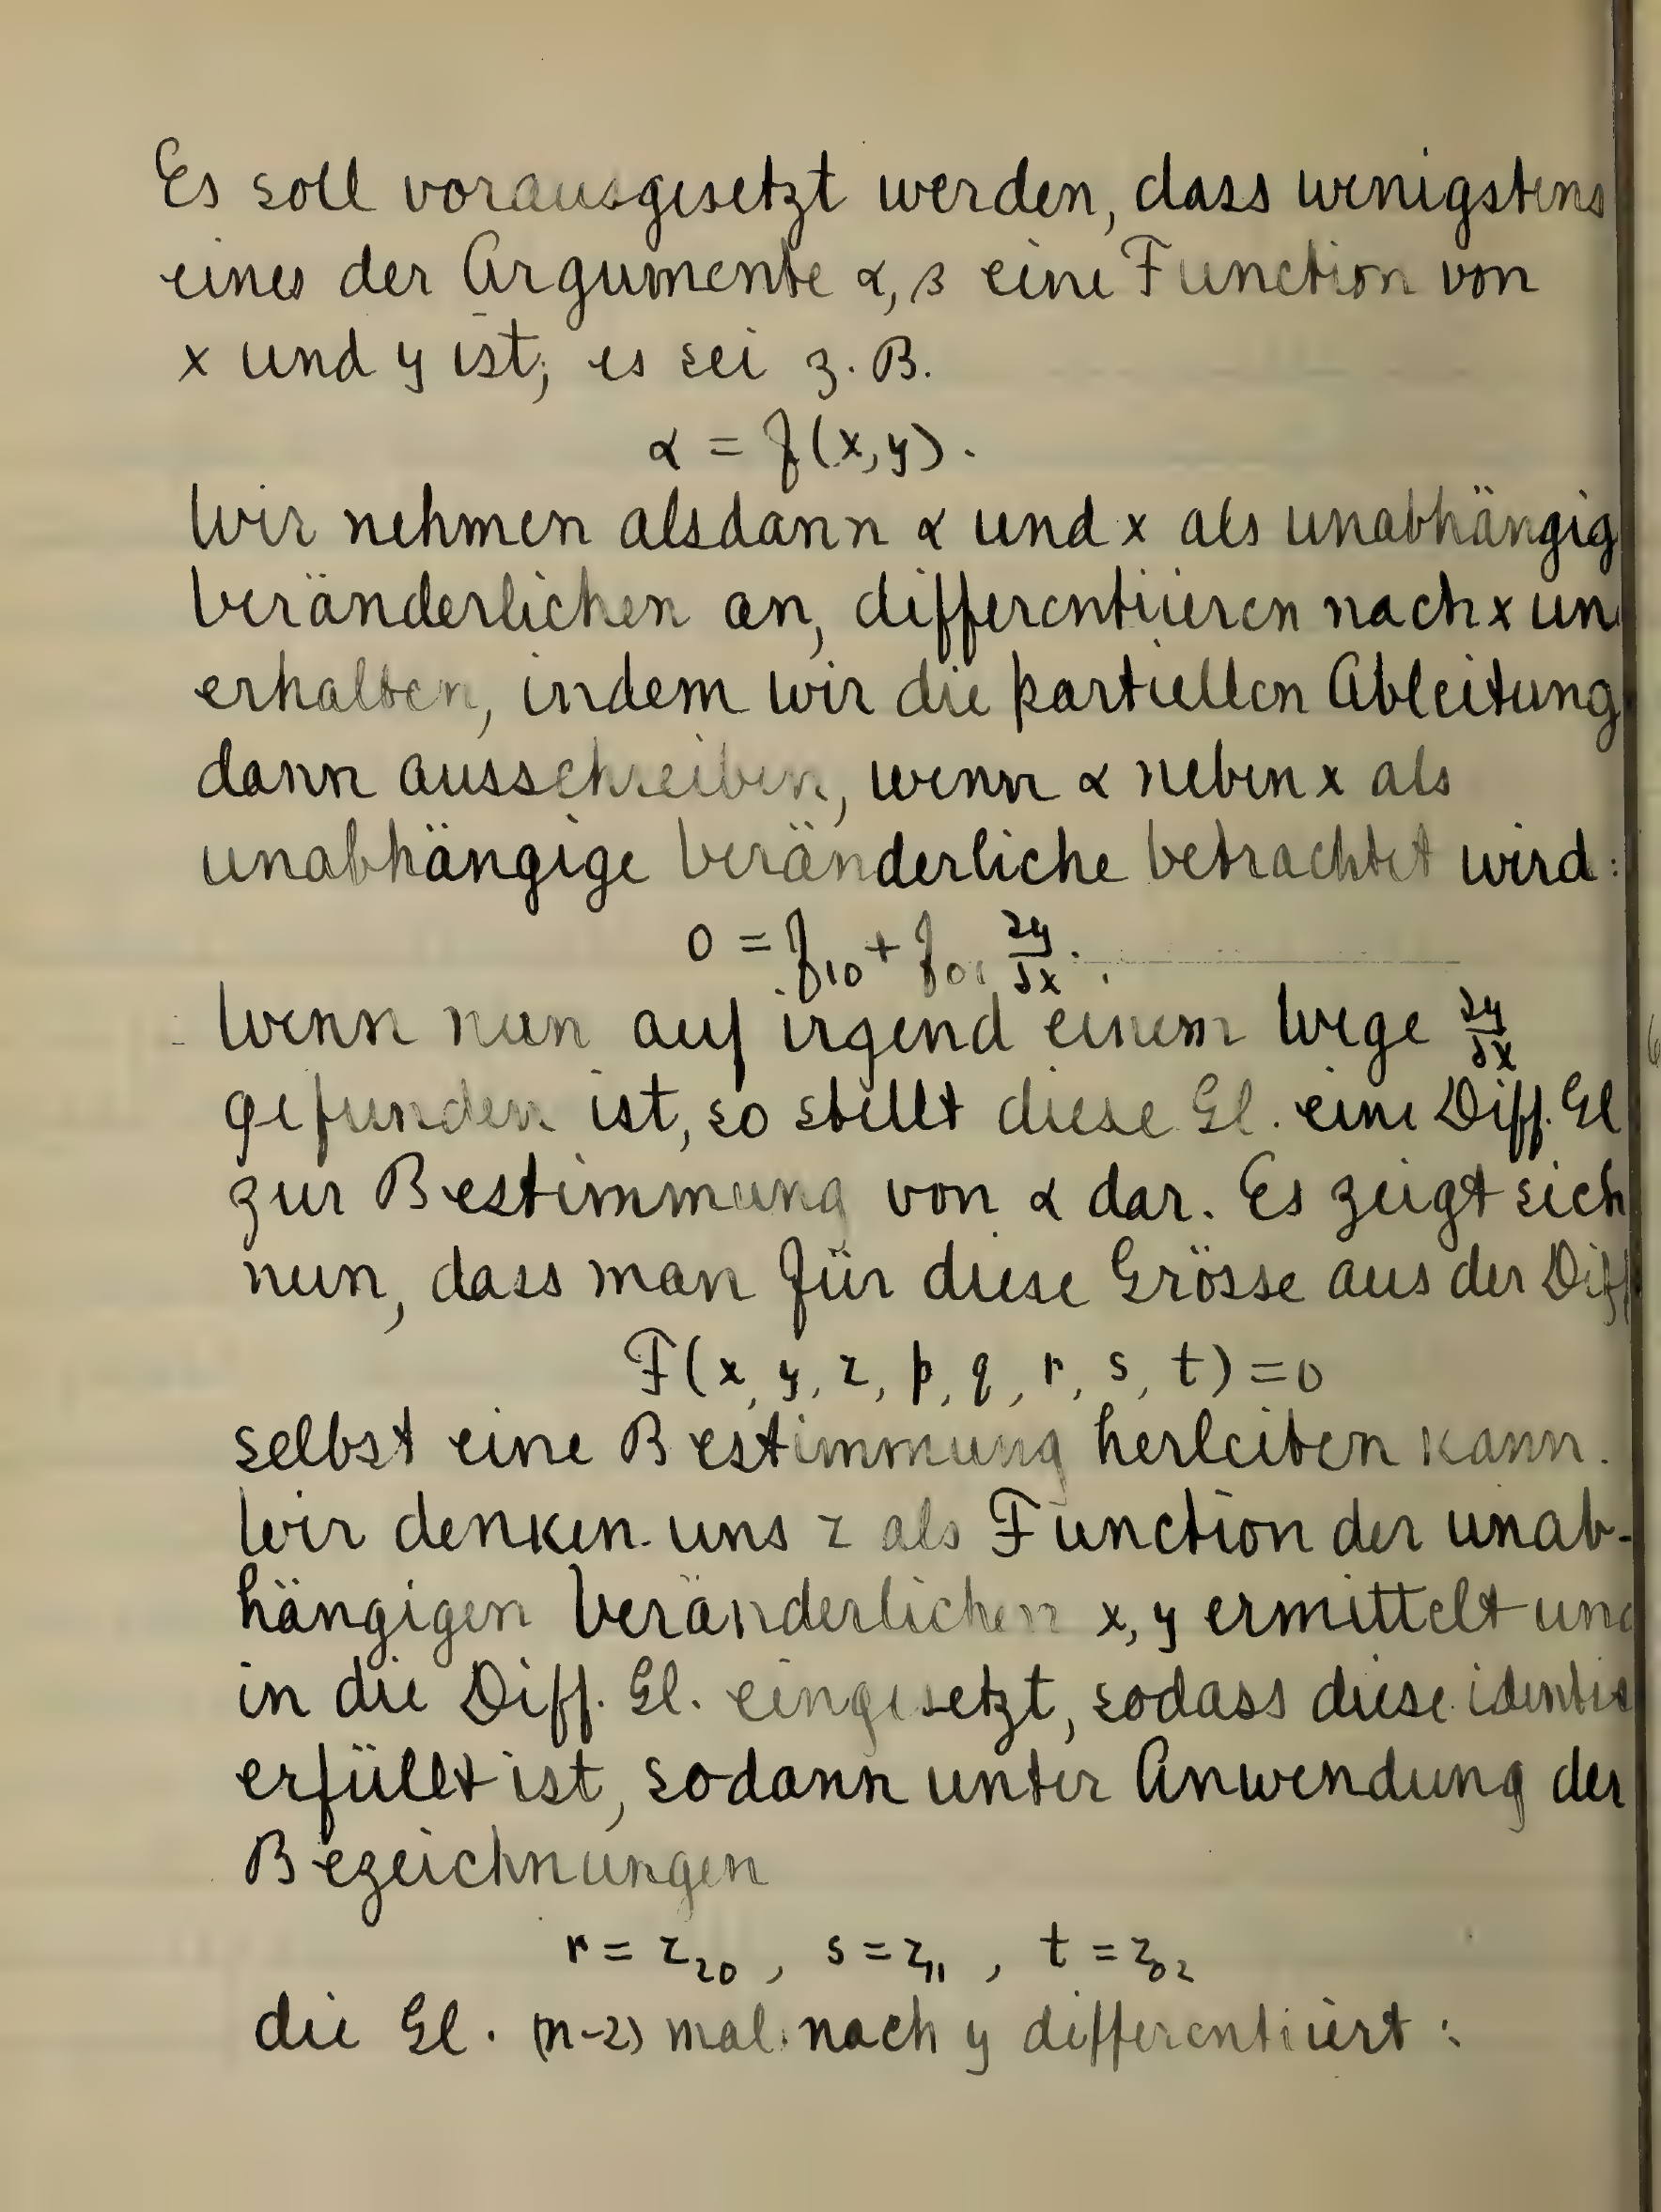 Es soll vorausgesetzt werden, dass wenigstens
eines der Argumente α, β eine Function von
x und y ist; es sei z. B.
α = f(x, y).
Wir nehmen alsdann α und x als unabhängig
Veränderlichen an, differentiieren nach x un
erhalten, indem wir die partiellen Ableitung
dann ausschreiben, wenn α neben x als
unabhängige Veränderliche betrachtet wird:
0 = f₁₀ + f₀₁ ∂y/∂x.
Wenn nun auf irgend einem Wege ∂y/∂x
gefunden ist, so stellt diese Gl. eine Diff. Gl
zur Bestimmung von α dar. Es zeigt sich
nun, dass man für diese Grösse aus der Diff
F(x, y, z, p, q, r, s, t) = 0
selbst eine Bestimmung herleiten kann.
Wir denken uns z als Function der unab-
hängigen Veränderlichen x, y ermittelt und
in die Diff. Gl. eingesetzt, sodass diese identis
erfüllt ist, sodann unter Anwendung der
Bezeichnungen
r = z₂₀, s = z₁₁, t = z₀₂
die Gl. (n-2) mal nach y differentiiert: